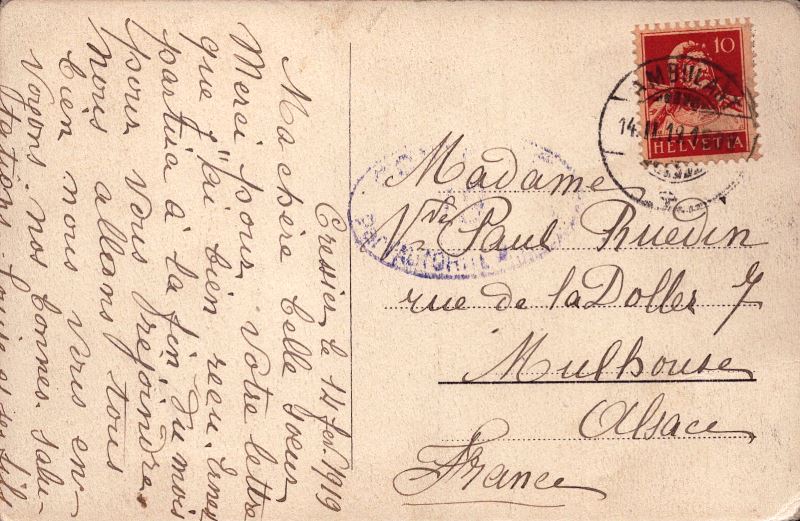 Cressier, le 14 fev. 1919
Ma chère belle soeur
Merci pour votre lettre
que j'ai bien reçu. Ernest
partira à la fin du mois
pour vous rejoindre
nous allons tous
bien nous vous en-
voyons nos bonnes salu-
tations. Louise et ses fils
Madame
Vve Paul Ruedin
rue de la Doller 7
Mulhouse
Alsace
France
10
HELVETIA
AMBULANT
14.II.19